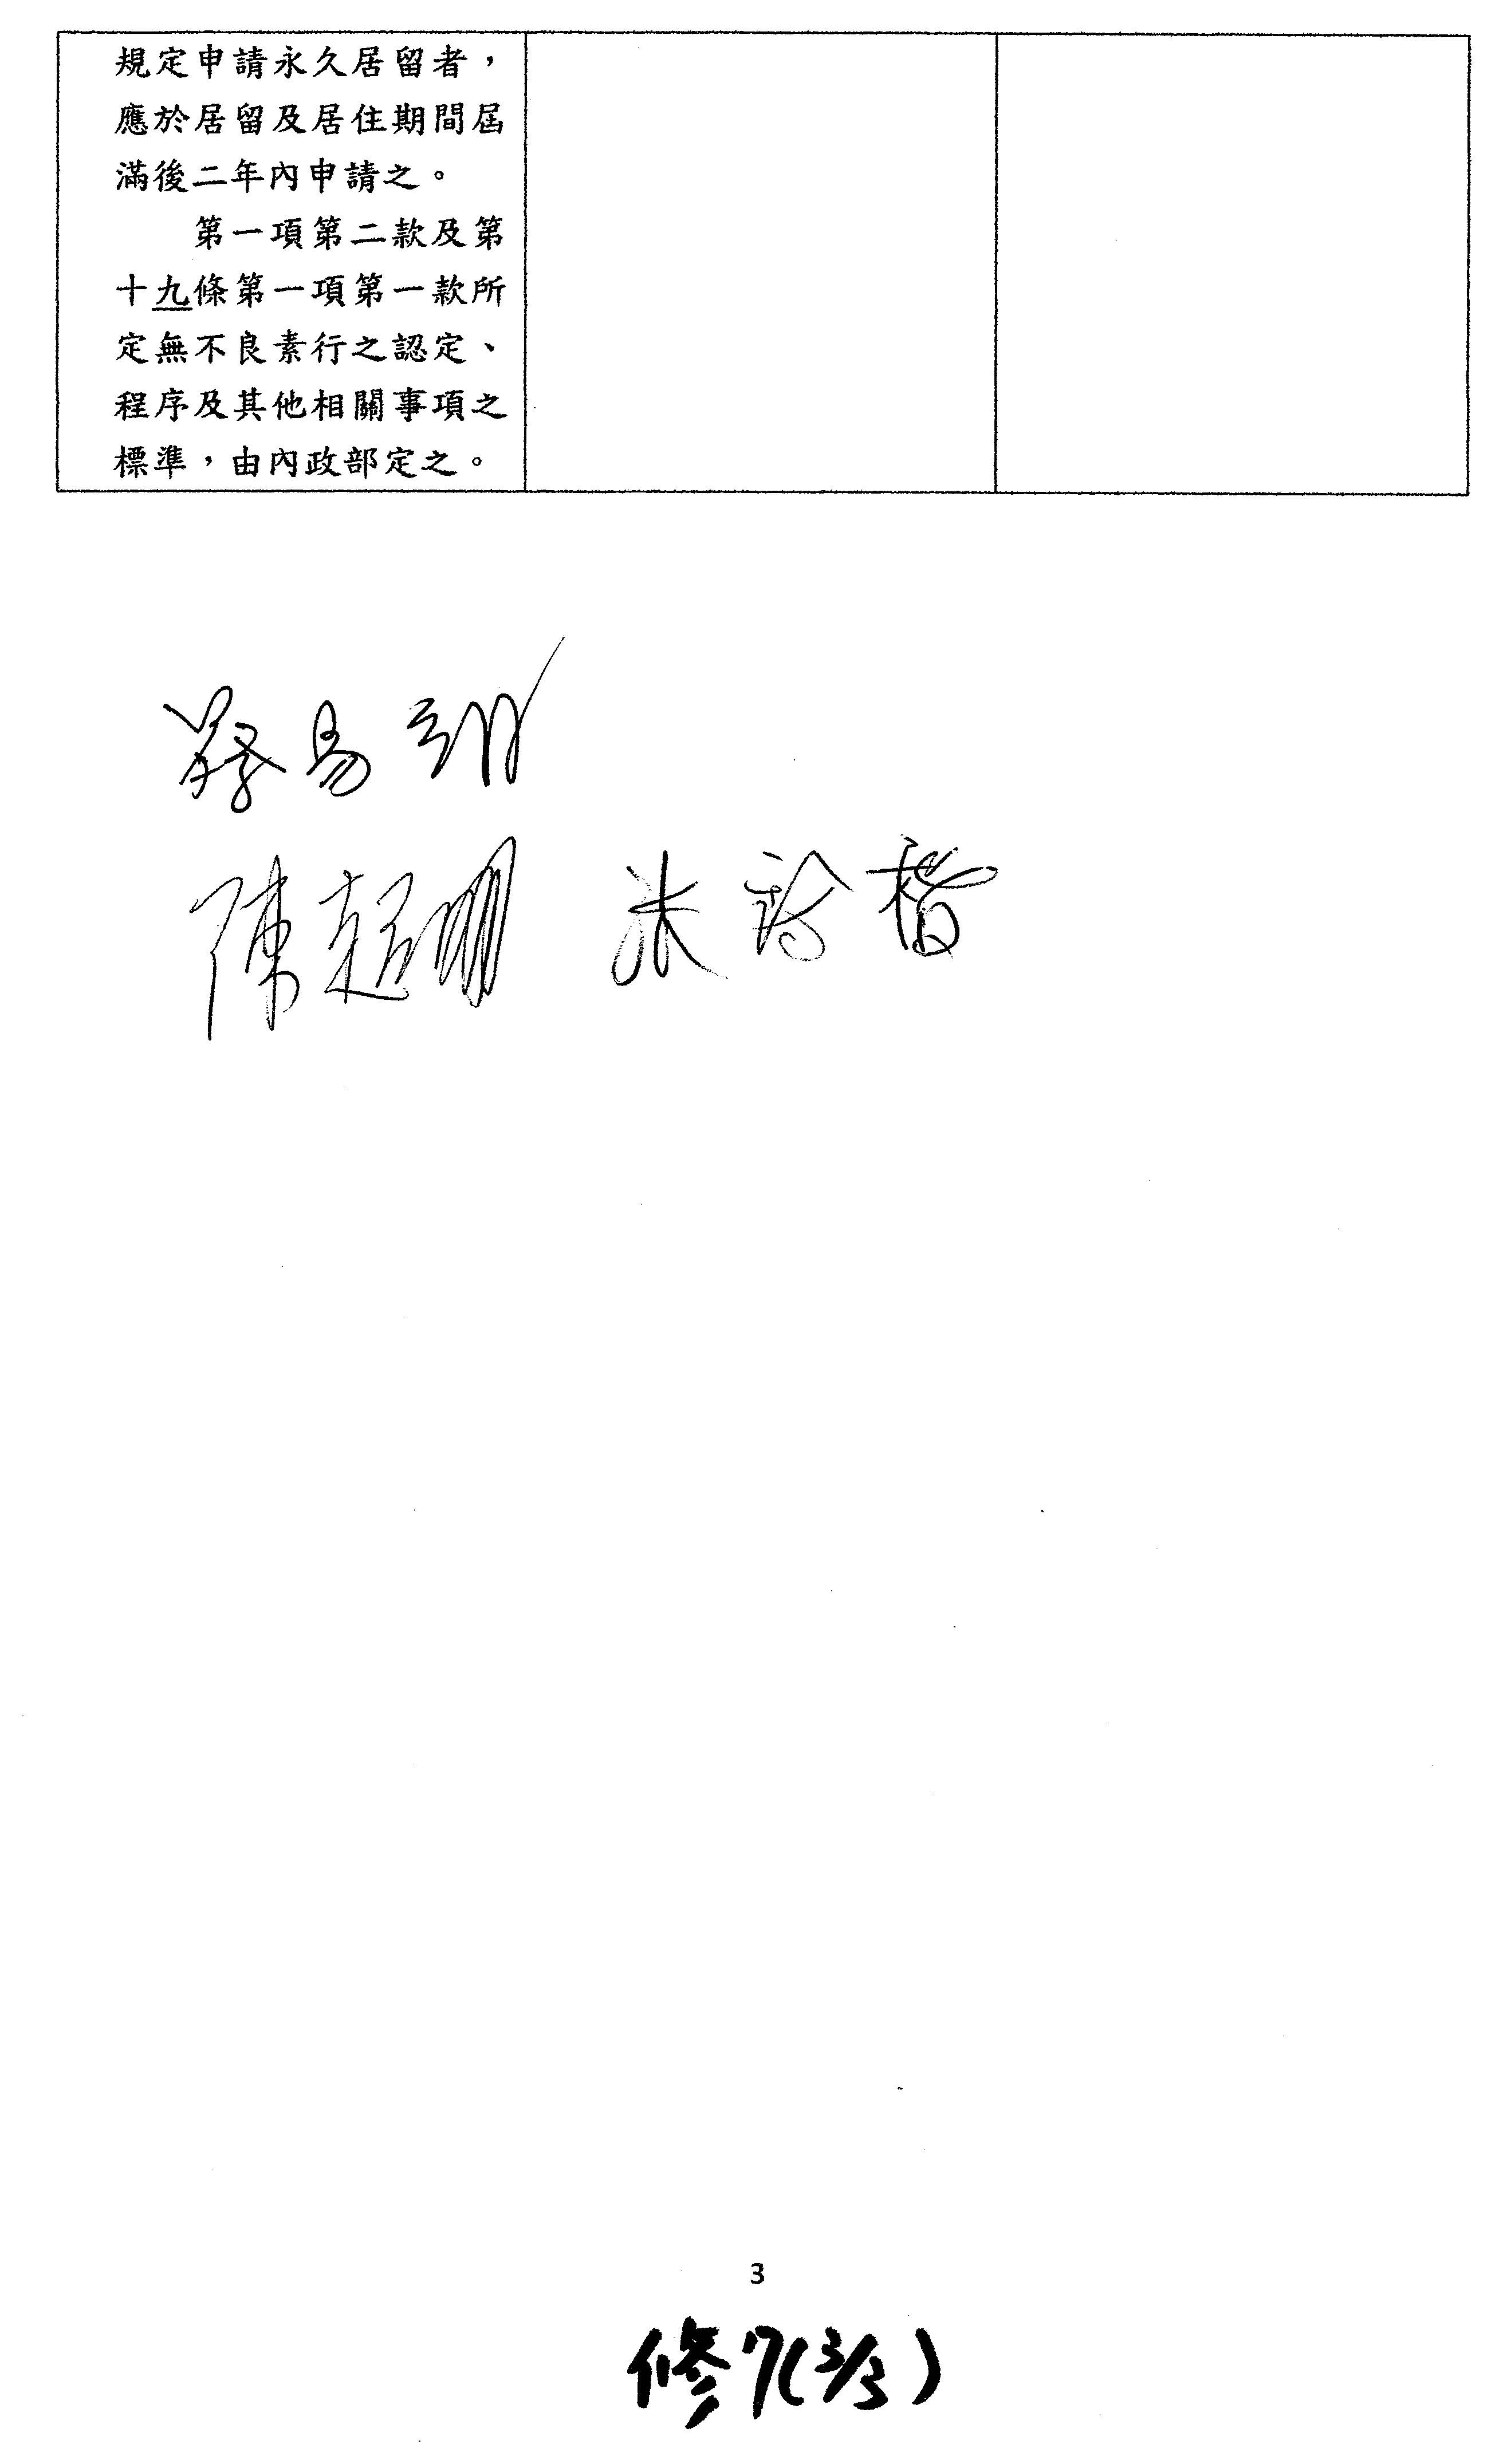 規定申請永久居留者，
應於居留及居住期間屆
滿後二年內申請之。
第一項第二款及第
十九條第一項第一款所
定無不良素行之認定、
程序及其他相關事項之
標準，由內政部定之。
蔡易餘
陳超明
3
修7(3/3)